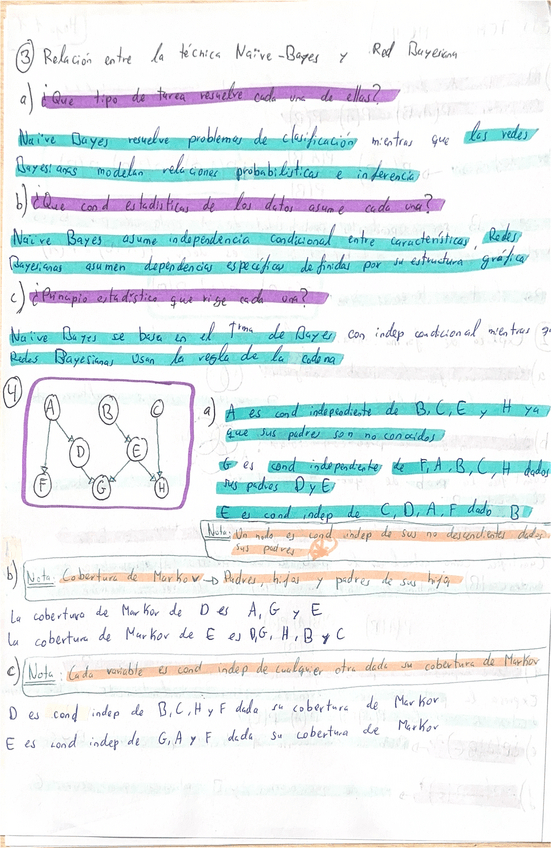 ③ Relación entre la técnica Naïve-Bayes y Red Bayesiana
a) ¿Que tipo de tarea resuelve cada una de ellas?
Naïve Bayes resuelve problemas de clasificación mientras que las redes
Bayesianas modelan relaciones probabilísticas e inferencia
b) ¿Que cond estadísticas de los datos asume cada una?
Naïve Bayes asume independencia condicional entre características, Redes
Bayesianas asumen dependencias específicas definidas por su estructura gráfica
c) ¿Principio estadístico que rige cada una?
Naïve Bayes se basa en el Tma de Bayes con indep condicional mientras
Redes Bayesianas usan la regla de la cadena
④
A B C
D E
F G H
a) A es cond independiente de B, C, E y H ya
que sus padres son no conocidos
G es cond independiente de F, A, B, C, H dados
sus padres D y E
E es cond indep de C, D, A, F dado B
Nota: Un nodo es cond indep de sus no descendientes dados
sus padres
b) Nota: Cobertura de Markov → Padres, hijos y padres de sus hijos
La cobertura de Markov de D es A, G y E
La cobertura de Markov de E es D, G, H, B y C
c) Nota: Cada variable es cond. indep de cualquier otra dada su cobertura de Markov
D es cond indep de B, C, H y F dada su cobertura de Markov
E es cond indep de G, A y F dada su cobertura de Markov